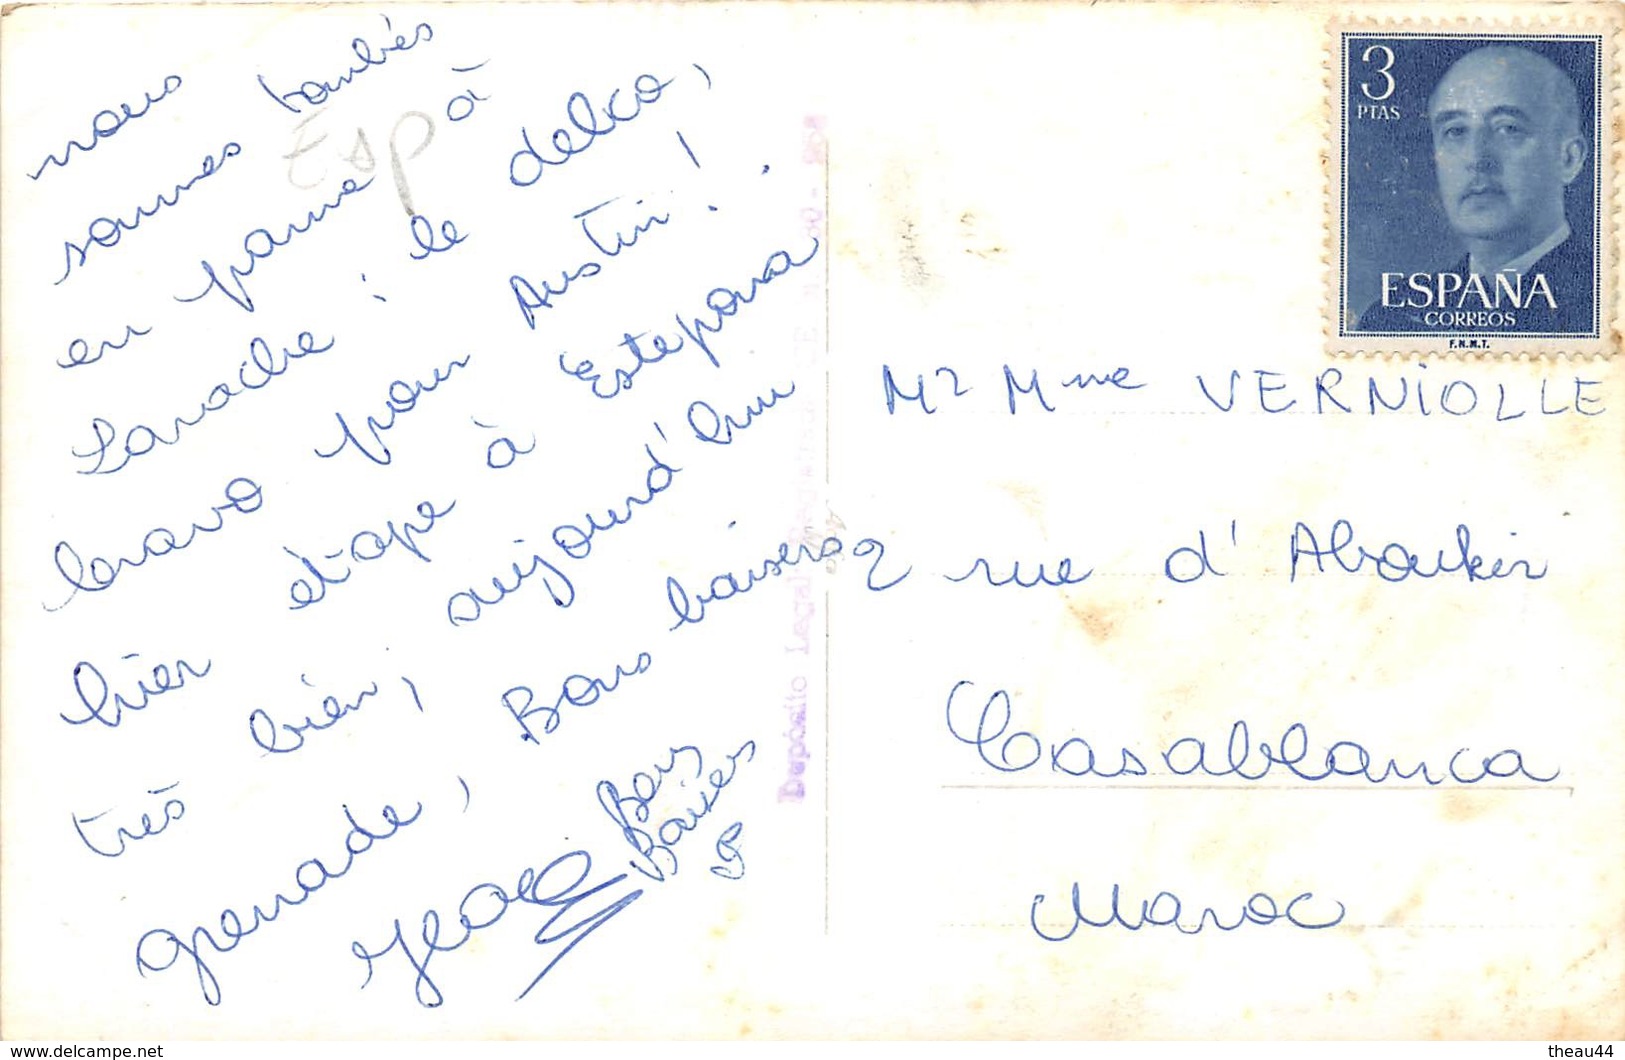 nous
sommes tombés
en panne à
Larache : le delco,
bravo pour Austin !
hier étape à Estepona.
très bien, aujourd'hui
grenade, Bons baisers
Bons
Baisers
Esp
3
PTAS
ESPAÑA
CORREOS
F.N.M.T.
Mr Mme VERNIOLLE
2 rue d'Aboukir
Casablanca
Maroc
Depósito Legal
www.delcampe.net
theau44